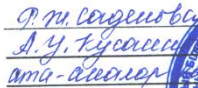 Р.Ж. Саденовa
А.У. Кусаин
ата-аналар